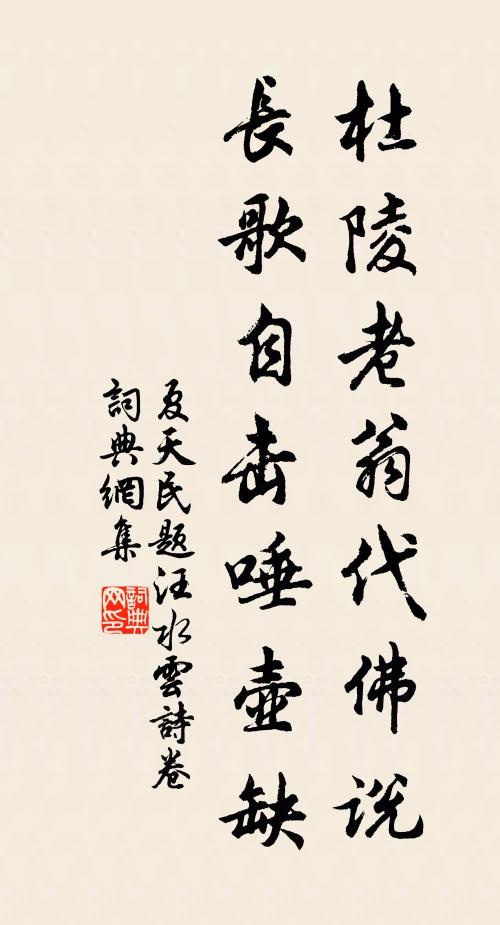 杜陵老翁代佛説
長歌自击唾壺缺
夏天民題汪水雲詩卷
詞典網集
詞典网印